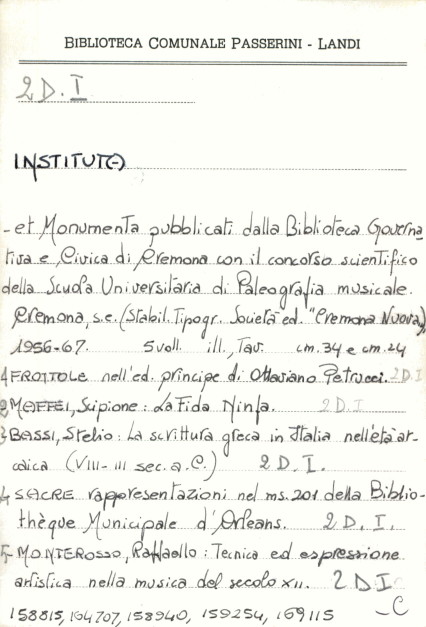 BIBLIOTECA COMUNALE PASSERINI - LANDI
2 D. I
INSTITUT(-)
- et Monumenta pubblicati dalla Biblioteca Governa
tiva e Civica di Cremona con il concorso scientifico
della Scuola Universitaria di Paleografia musicale.
Cremona, s.e. (Stabil. Tipogr. Società ed. "Cremona Nuova")
1956-67. 5 voll. ill., Tav. cm. 34 e cm. 24
1 FROTTOLE nell'ed. principe di Ottaviano Petrucci. 2 D I
2 MAFFEI, Scipione: La Fida Ninfa. 2 D. I
3 BASSI, Stelio: La scrittura greca in Italia nell'età ar-
caica (VIII-III sec. a.C.) 2 D. I.
4 SACRE rappresentazioni nel ms. 201 della Biblio-
thèque Municipale d'Orleans. 2 D. I.
5- MONTEROSSO, Raffaello: Tecnica ed espressione
artistica nella musica del secolo XII. 2 D I
158815, 164707, 158940, 159254, 169115 -C